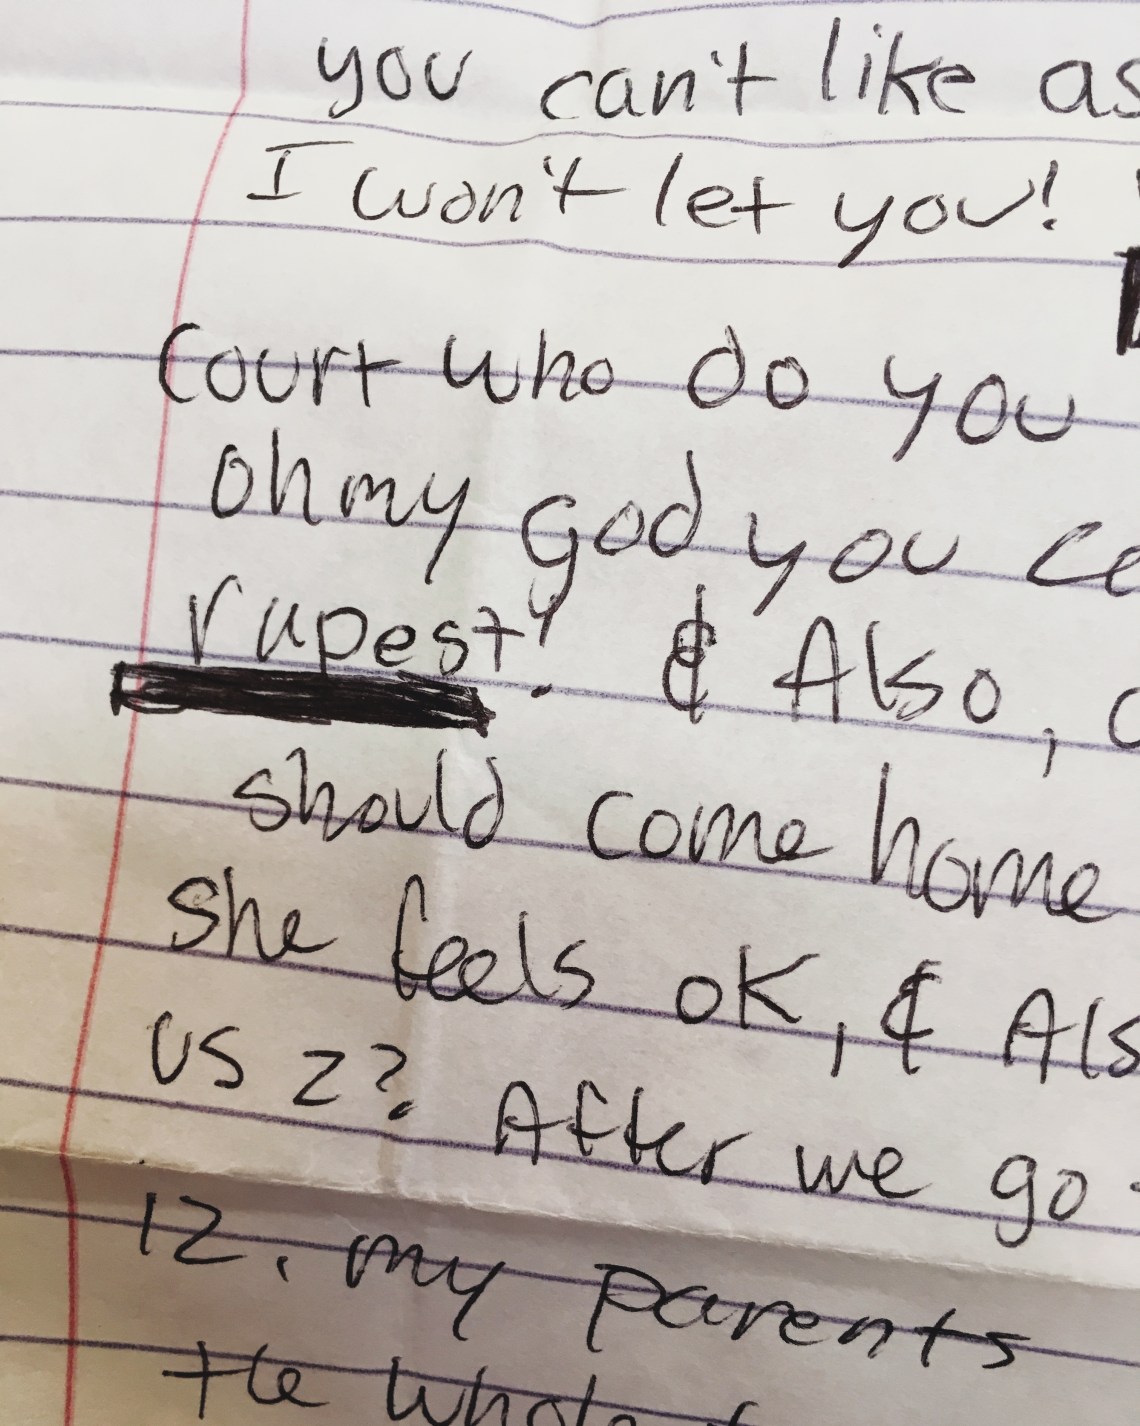 you can't like as
I won't let you!
Court who do you
oh my god you ca
rapest! & Also,
should come home
she feels ok, & Als
us 2? After we go
12. my parents
the whole